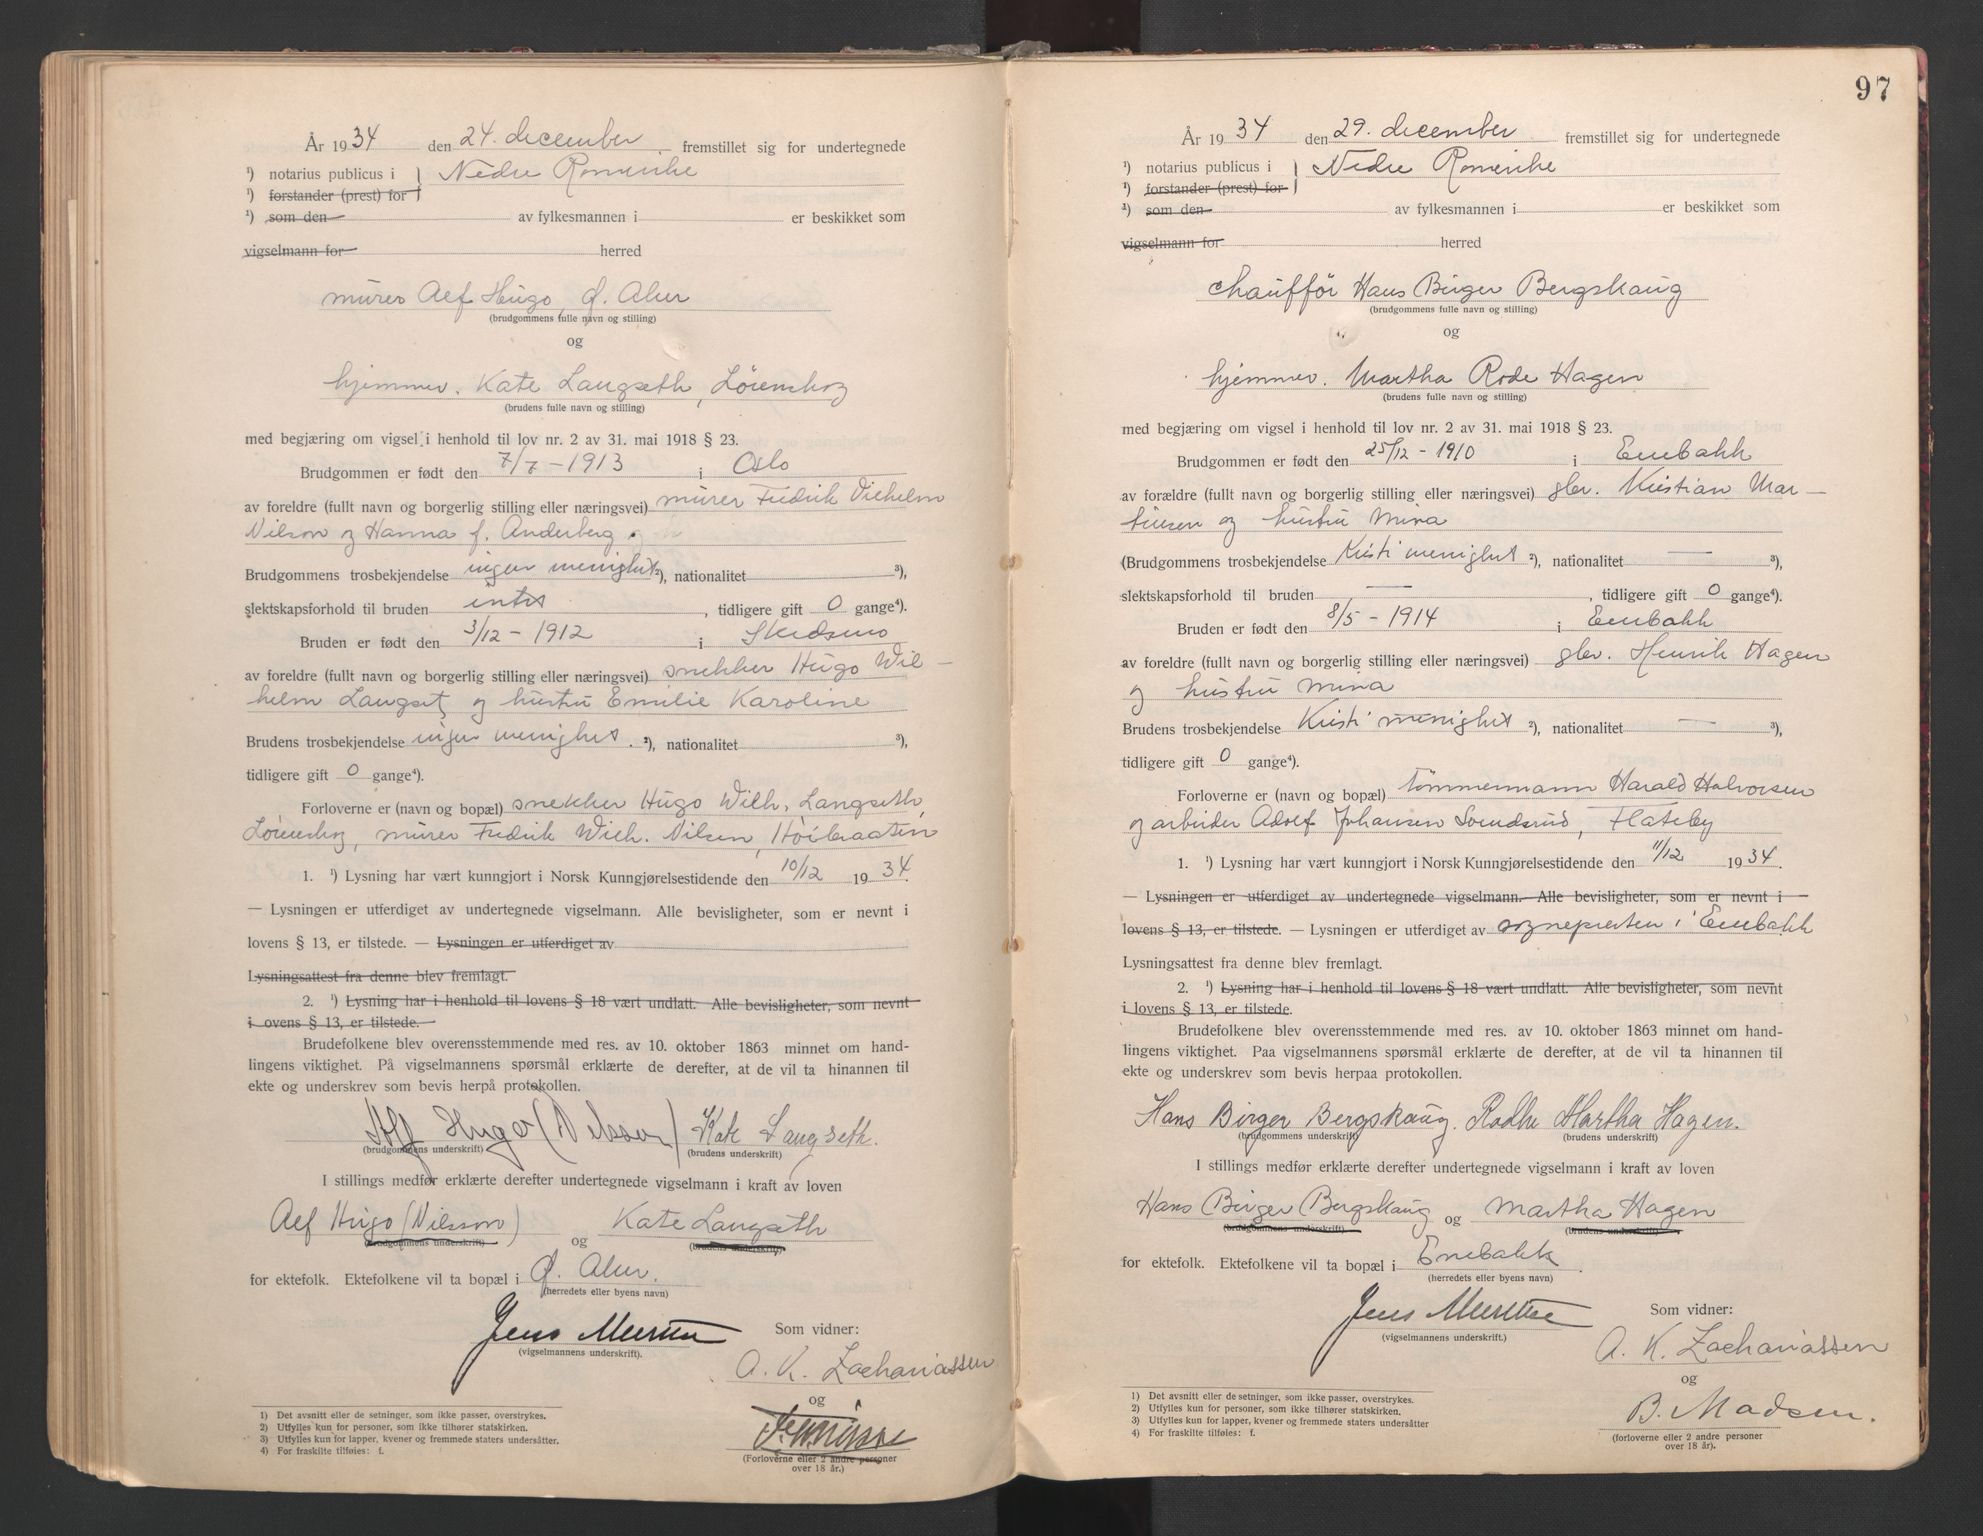 År 1934 den 24. december fremstillet sig for undertegnede
¹) notarius publicus i } Nedre Romerike
¹) forstander (prest) for
¹) som den av fylkesmannen i er beskikket som
vigselmann for herred
murer Alf Hugo, Ø. Aker
(brudgommens fulle navn og stilling)
og
hjemmev. Kate Langseth, Lörenskog
(brudens fulle navn og stilling)
med begjæring om vigsel i henhold til lov nr. 2 av 31. mai 1918 § 23.
Brudgommen er født den 7/7 - 1913 i Oslo
av foreldre (fullt navn og borgerlig stilling eller næringsvei) murer Fredrik Vilhelm
Nilson og Hanna f. Anderberg.
Brudgommens trosbekjendelse ingen menighet ²), nationalitet ³),
slektskapsforhold til bruden intet, tidligere gift 0 gange⁴).
Bruden er født den 3/12 - 1912 i Skedsmo
av foreldre (fullt navn og borgerlig stilling eller næringsvei) snekker Hugo Wil-
helm Langset og hustru Emilie Karoline
Brudens trosbekjendelse ingen menighet. ²), nationalitet ³),
tidligere gift 0 gange⁴).
Forloverne er (navn og bopæl) snekker Hugo Wilh. Langseth,
Lörenskog, murer Fredrik Wilh. Nilsen, Höibraaten
1. ¹) Lysning har vært kunngjort i Norsk Kunngjørelsestidende den 10/12 1934.
— Lysningen er utferdiget av undertegnede vigselmann. Alle bevisligheter, som er nevnt i
lovens § 13, er tilstede. — Lysningen er utferdiget av
Lysningsattest fra denne blev fremlagt.
2. ¹) Lysning har i henhold til lovens § 18 vært undlatt. Alle bevisligheter, som nevnt
i lovens § 13, er tilstede.
Brudefolkene blev overensstemmende med res. av 10. oktober 1863 minnet om hand-
lingens viktighet. På vigselmannens spørsmål erklærte de derefter, at de vil ta hinannen til
ekte og underskrev som bevis herpå protokollen.
Alf Hugo (Nilsson) Kate Langseth.
(brudgommens underskrift) (brudens underskrift)
I stillings medfør erklærte derefter undertegnede vigselmann i kraft av loven
Alf Hugo (Nilsson) og Kate Langseth
(brudgommens underskrift) (brudens underskrift)
for ektefolk. Ektefolkene vil ta bopæl i Ø. Aker.
(herredets eller byens navn)
Som vidner:
(vigselmannens underskrift).
A. K. Zachariassen
og
(Forloverne eller 2 andre personer
over 18 år.)
1) Det avsnitt eller de setninger, som ikke passer, overstrykes.
2) Utfylles kun for personer, som ikke tilhører statskirken.
3) Utfylles kun for lapper, kvener og fremmede staters undersåtter.
4) For fraskilte tilføies: f.
97
År 1934 den 29. december fremstillet sig for undertegnede
¹) notarius publicus i } Nedre Romerike
¹) forstander (prest) for
¹) som den av fylkesmannen i er beskikket som
vigselmann for herred
chaufför Hans Birger Bergskaug
(brudgommens fulle navn og stilling)
og
hjemmev. Martha Rode Hagen
(brudens fulle navn og stilling)
med begjæring om vigsel i henhold til lov nr. 2 av 31. mai 1918 § 23.
Brudgommen er født den 25/12 - 1910 i Enebakk
av forældre (fullt navn og borgerlig stilling eller næringsvei) gbr. Kristian Mar-
tinsen og hustru Mina
(Brudgommens trosbekjendelse Kristi menighet ²), nationalitet — ³),
slektskapsforhold til bruden —, tidligere gift 0 gange⁴).
Bruden er født den 8/5 - 1914 i Enebakk
av foreldre (fullt navn og borgerlig stilling eller næringsvei) gbr. Henrik Hagen
og hustru Mina
Brudens trosbekjendelse Kristi menighet ²), nationalitet — ³),
tidligere gift 0 gange⁴).
Forloverne er (navn og bopæl) tömmermann Harald Halvorsen
og arbeider Adolf Johansen Svendsrud, Flateby
1. ¹) Lysning har vært kunngjort i Norsk Kunngjørelsestidende den 11/12 1934.
— Lysningen er utferdiget av undertegnede vigselmann. Alle bevisligheter, som er nevnt i
lovens § 13, er tilstede. — Lysningen er utferdiget av sognepresten i Enebakk
Lysningsattest fra denne blev fremlagt.
2. ¹) Lysning har i henhold til lovens § 18 vært undlatt. Alle bevisligheter, som nevnt
i lovens § 13, er tilstede.
Brudefolkene blev overensstemmende med res. av 10. oktober 1863 minnet om hand-
lingens viktighet. Paa vigselmannens spørsmål erklærte de derefter, at de vil ta hinannen til
ekte og underskrev som bevis herpaa protokollen.
Hans Birger Bergskaug. Rodhe Martha Hagen.
(brudgommens underskrift) (brudens underskrift)
I stillings medfør erklærte derefter undertegnede vigselmann i kraft av loven
Hans Birger Bergskaug og Martha Hagen
(brudgommens underskrift) (brudens underskrift)
for ektefolk. Ektefolkene vil ta bopæl i Enebakk.
(herredets eller byens navn)
Som vidner:
(vigselmannens underskrift.)
A. K. Zachariassen
og
B. Madsen.
(forloverne eller 2 andre personer
over 18 år).
1) Det avsnitt eller de setninger, som ikke passer, overstrykes.
2) Utfylles kun for personer, som ikke tilhører statskirken.
3) Utfylles kun for lapper, kvener og fremmede staters undersåtter
4) For fraskilte tilføies: f.